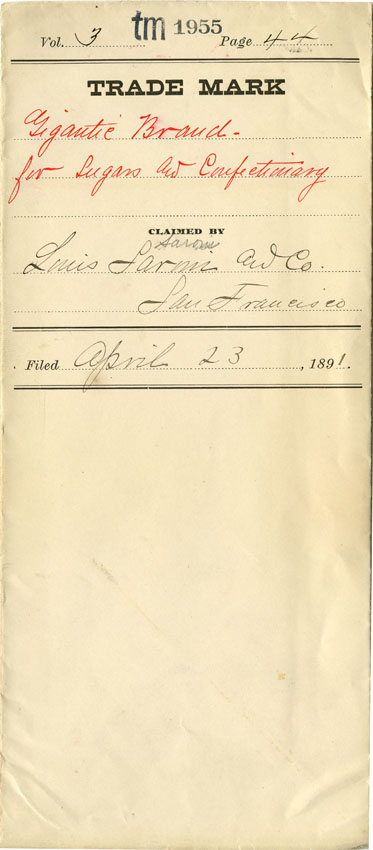 Vol. 3 tm 1955 Page 44
TRADE MARK
Gigantic Brand -
for Sugars and Confectionary
CLAIMED BY
Saroni
Louis Saroni and Co.
San Francisco
Filed April 23, 1891.